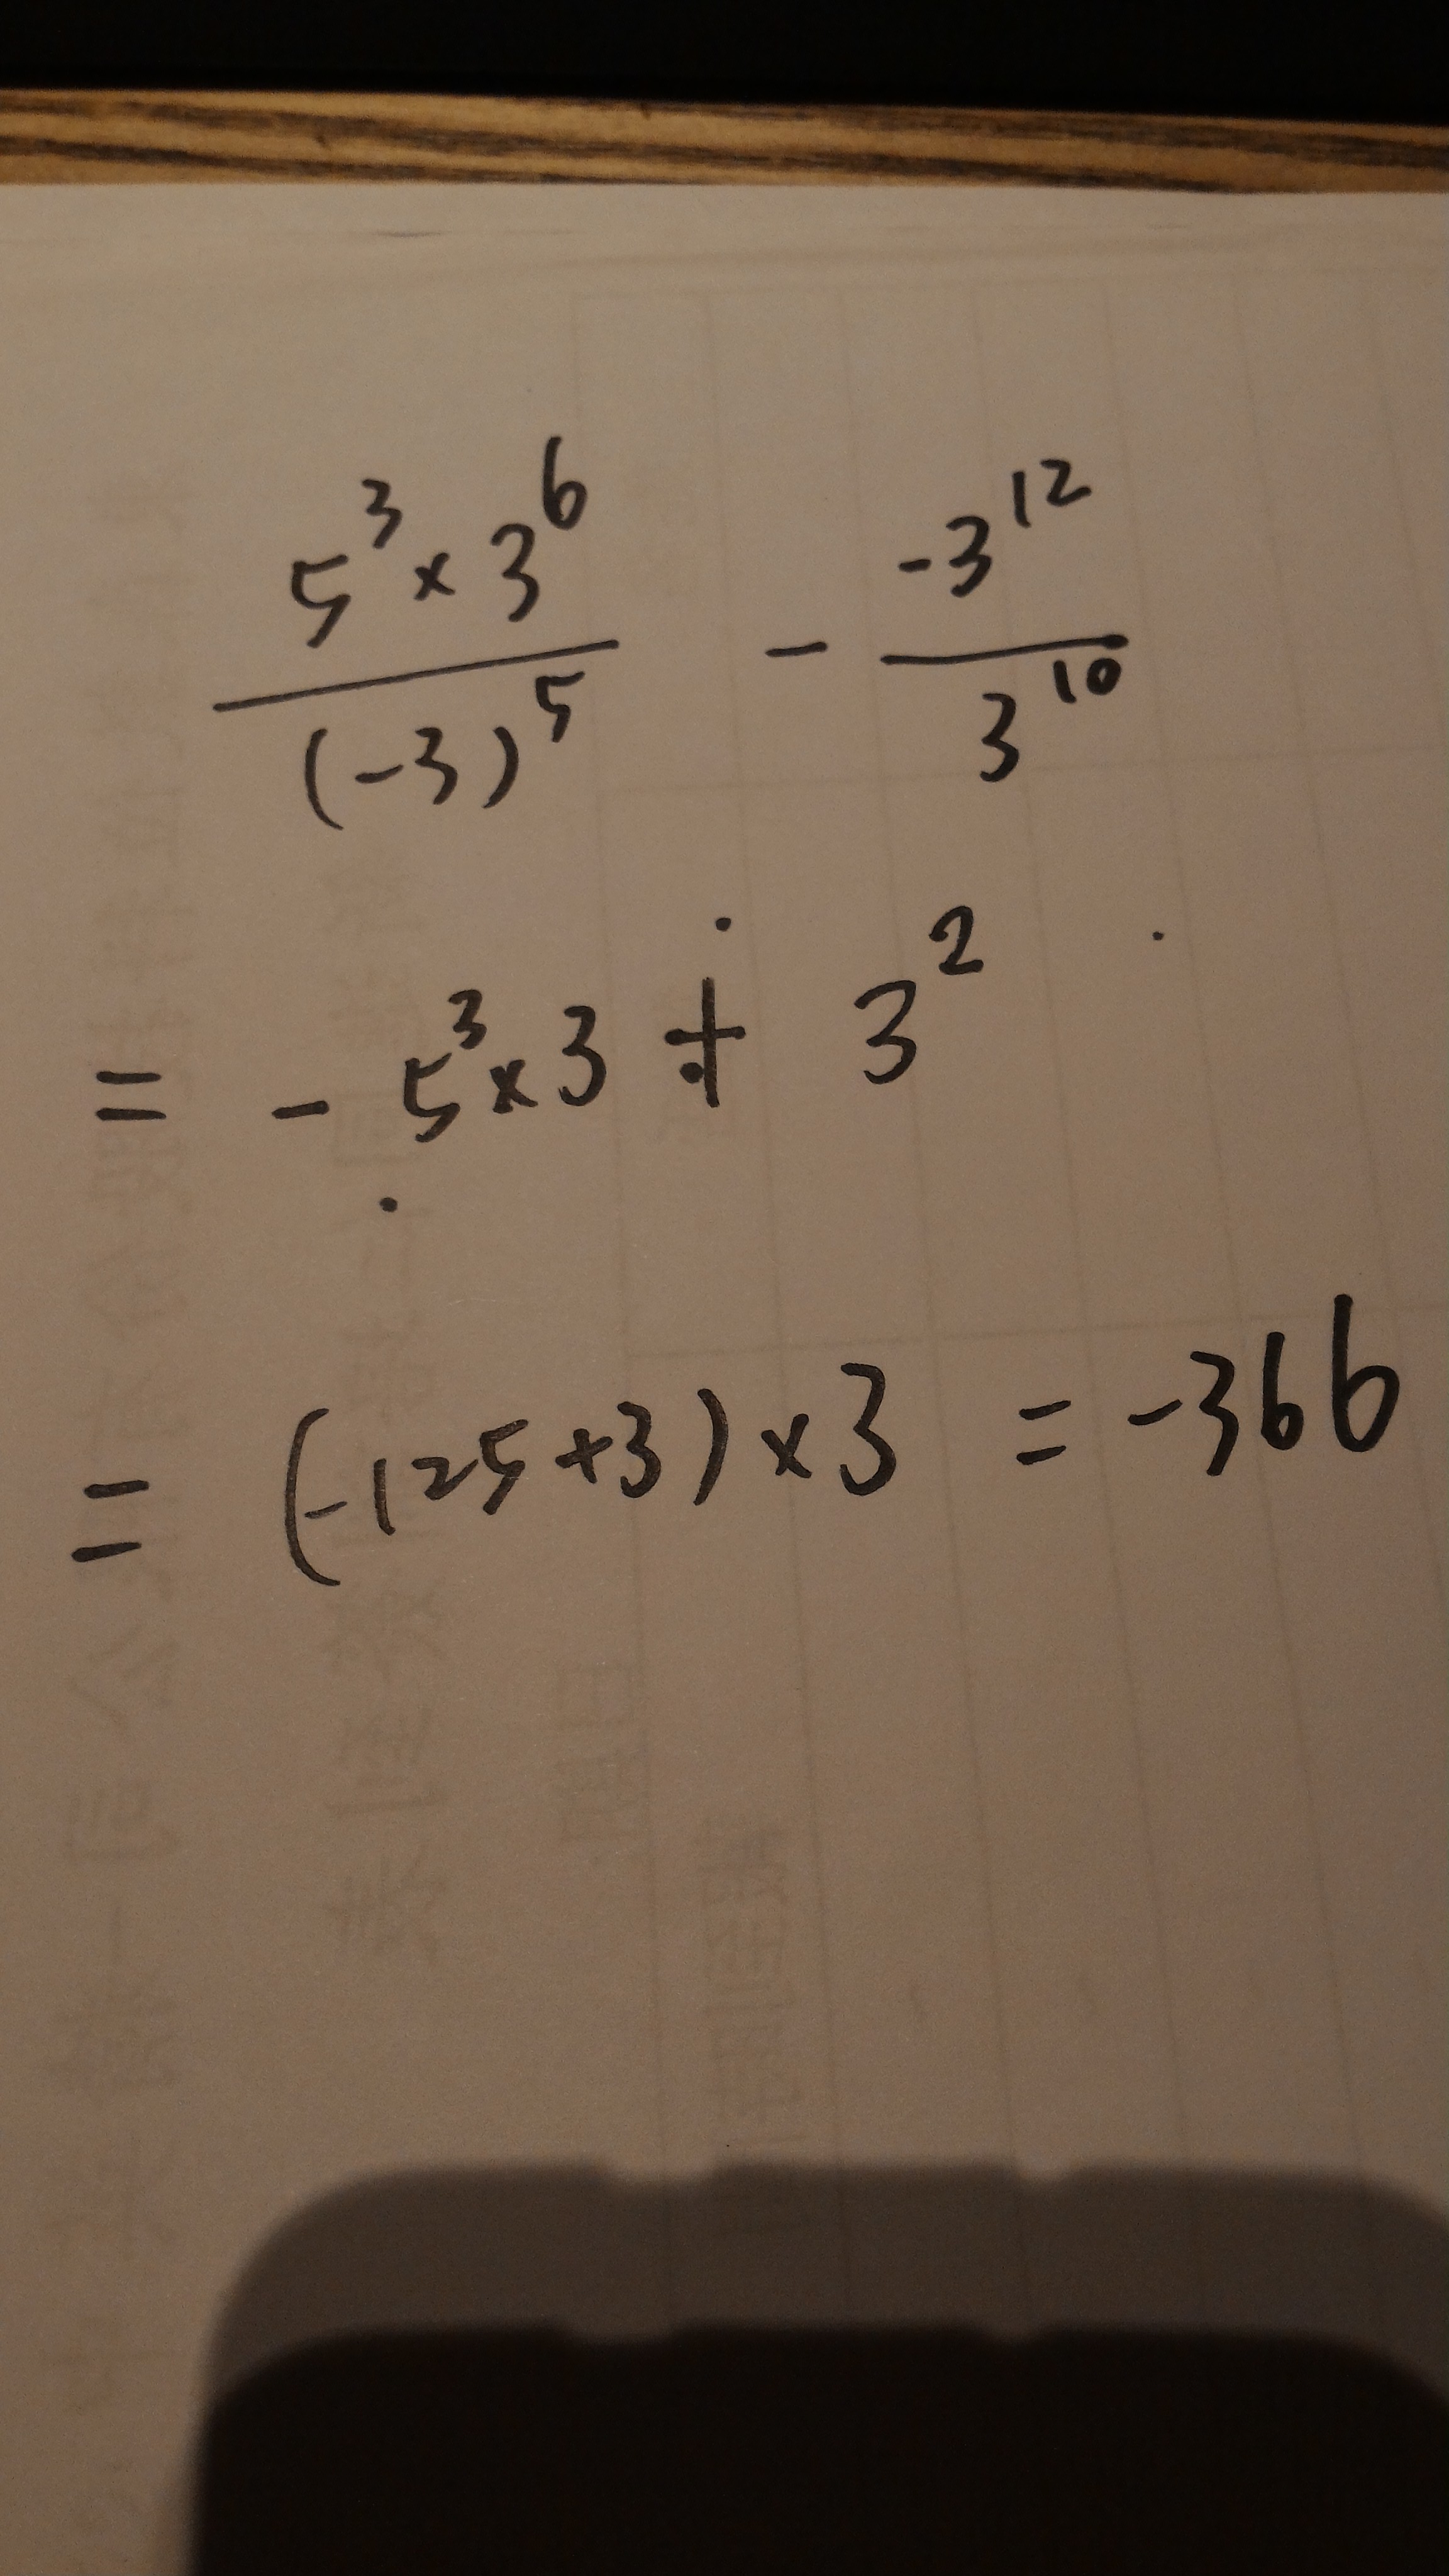 5³ × 3⁶ / (-3)⁵ - -3¹² / 3¹⁰
= - 5³ × 3 + 3²
= (-125 + 3) × 3 = -366